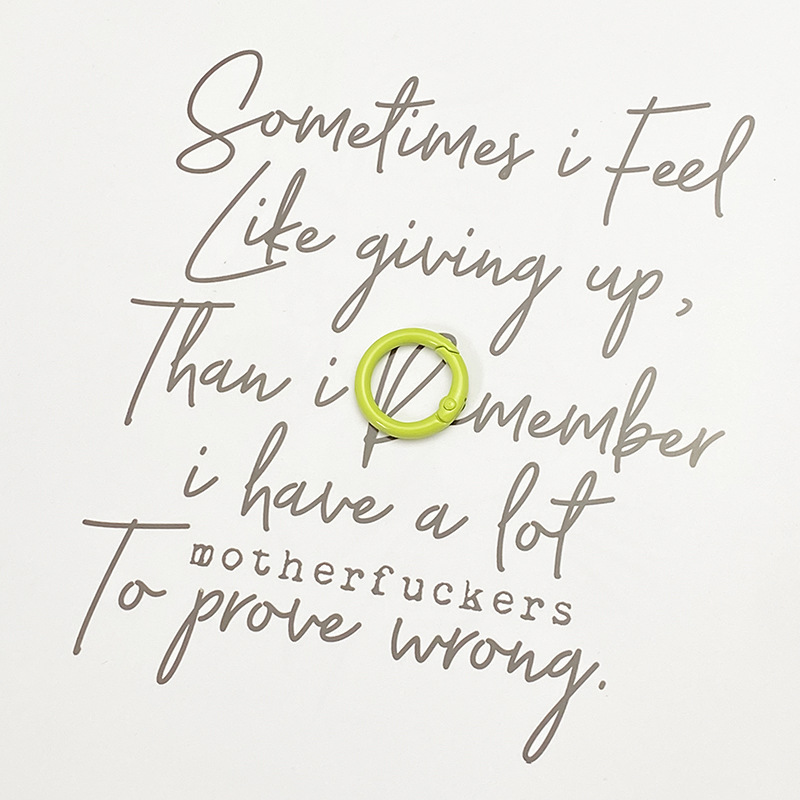 Sometimes i Feel
Like giving up,
Than i Remember
i have a lot
motherfuckers
To prove wrong.